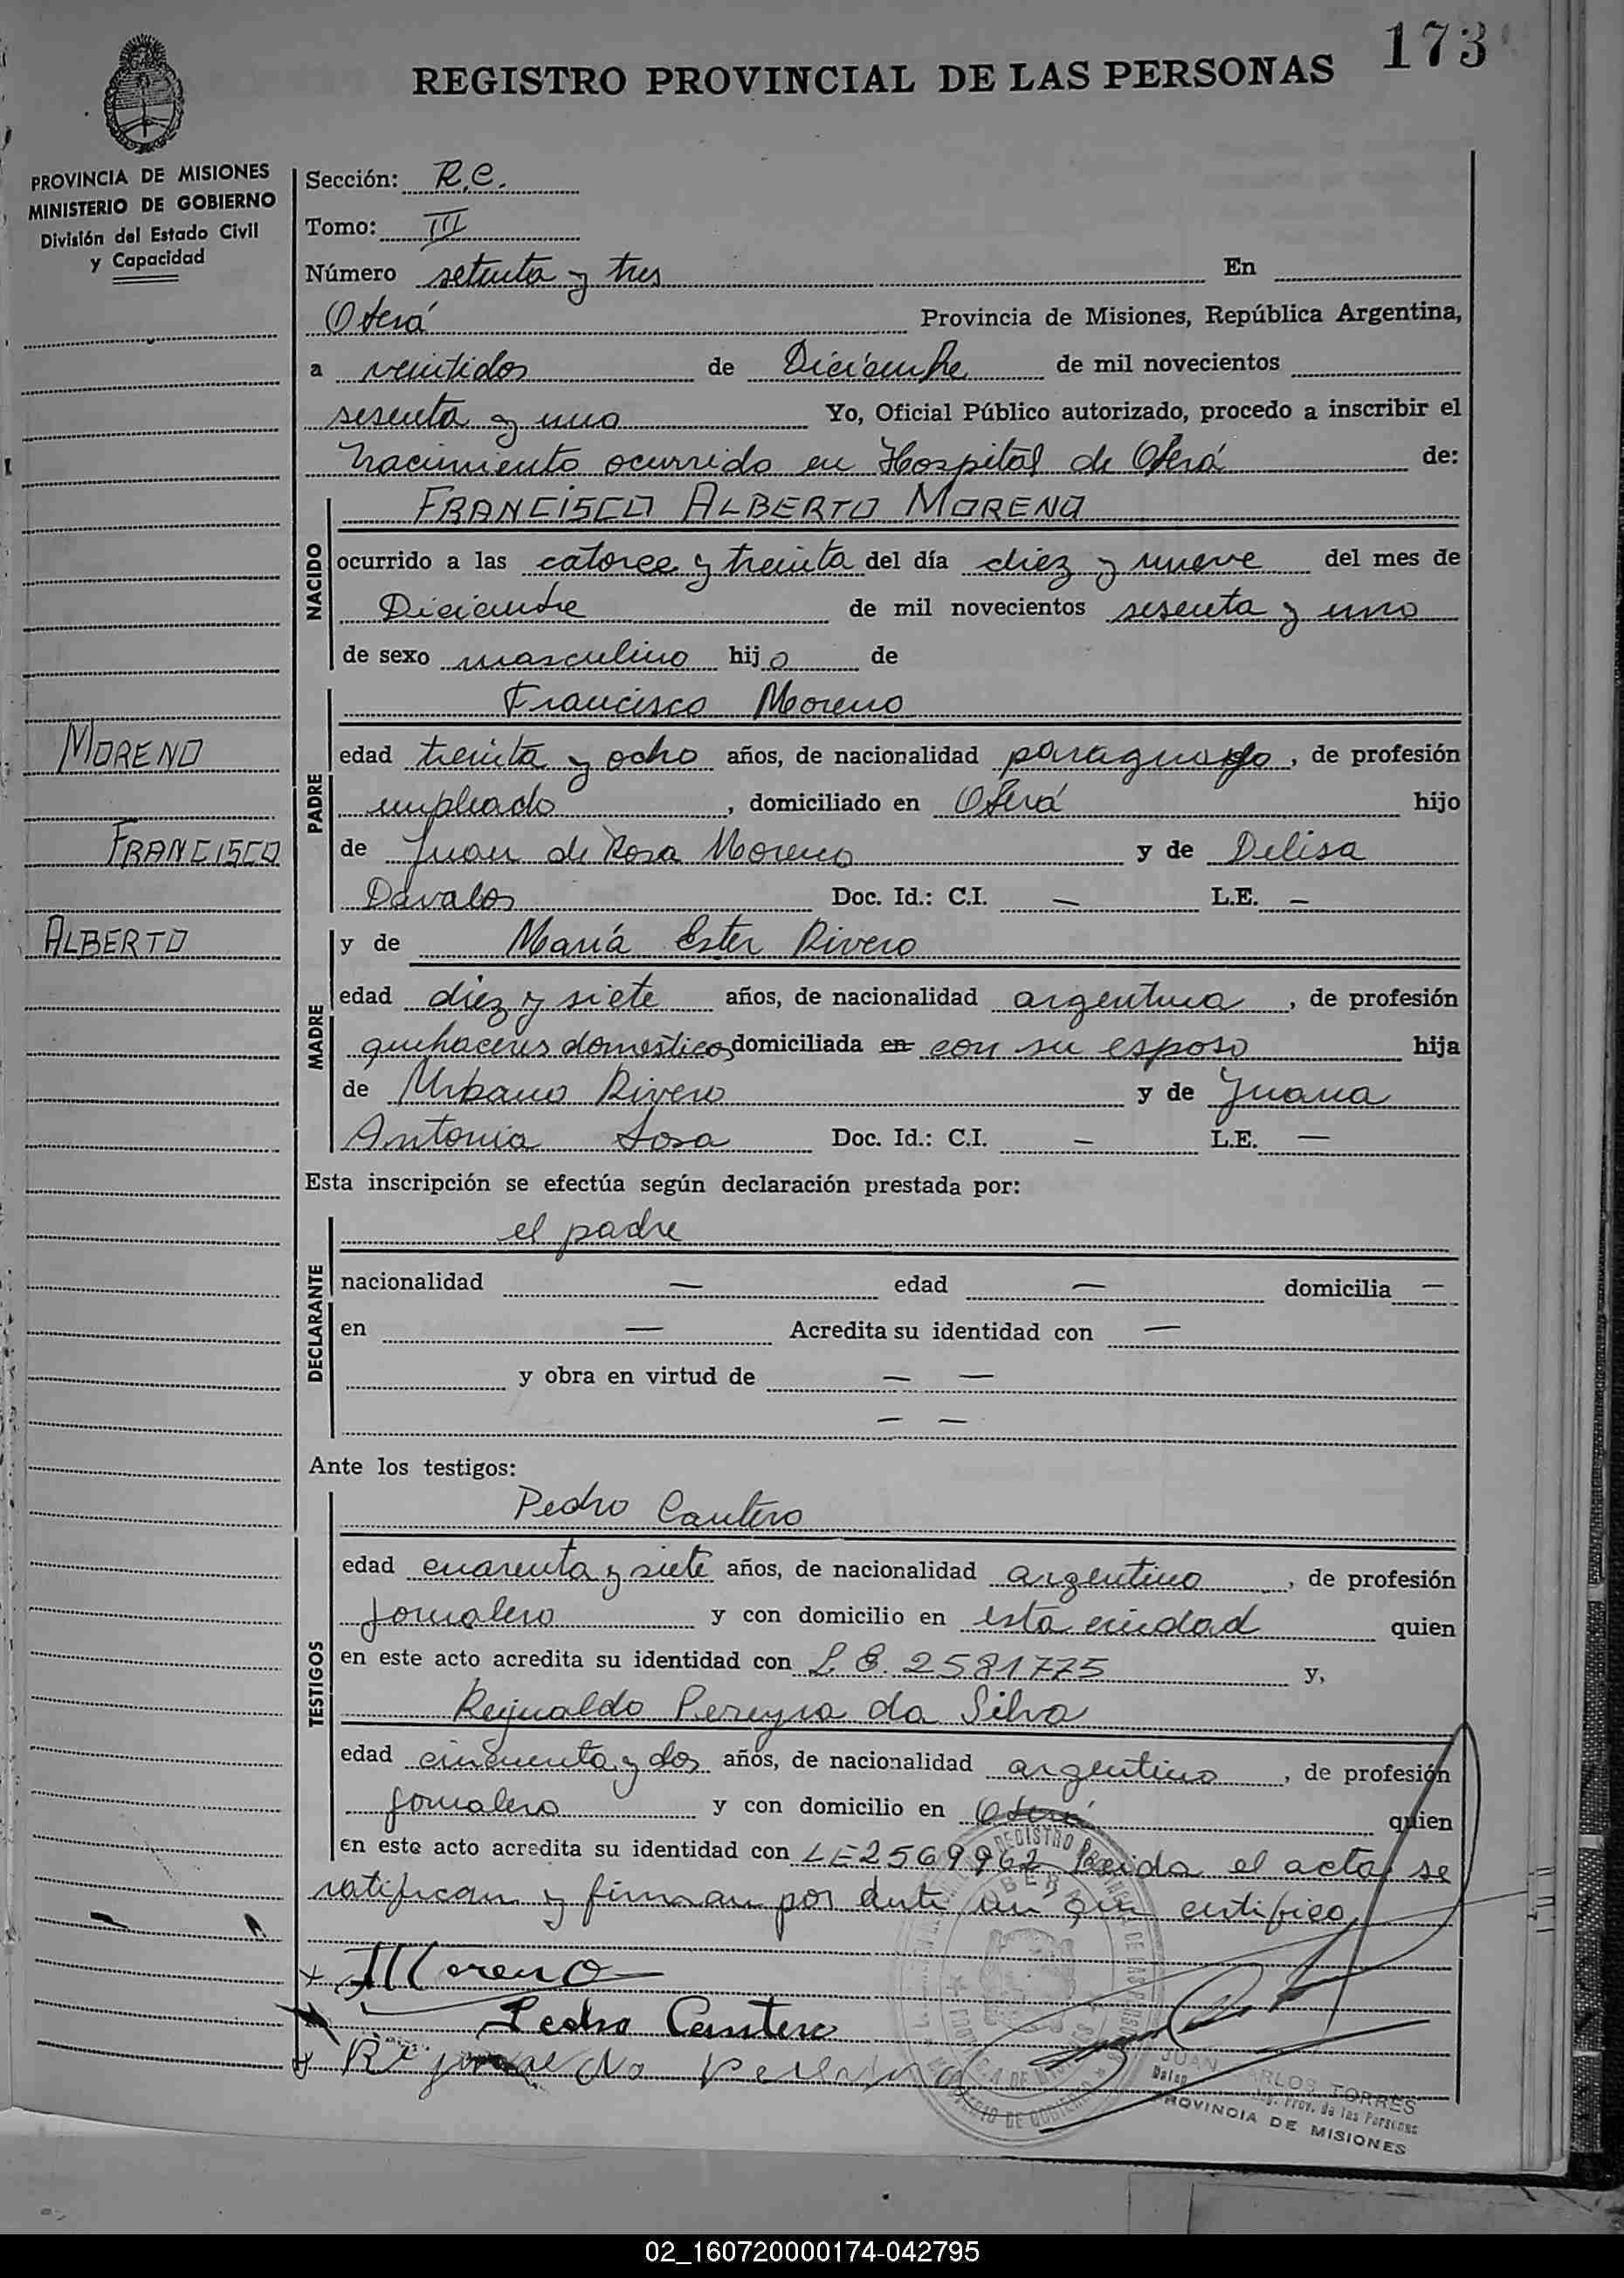 173
REGISTRO PROVINCIAL DE LAS PERSONAS
PROVINCIA DE MISIONES
MINISTERIO DE GOBIERNO
División del Estado Civil
y Capacidad
Sección: R.C.
Tomo: III
Número setenta y tres En
Oberá Provincia de Misiones, República Argentina,
a veintidos de Diciembre de mil novecientos
sesenta y uno Yo, Oficial Público autorizado, procedo a inscribir el
Nacimiento ocurrido en Hospital de Oberá de:
NACIDO
FRANCISCO ALBERTO MORENO
ocurrido a las catorce y treinta del día diez y nueve del mes de
Diciembre de mil novecientos sesenta y uno
de sexo masculino hijo de
PADRE
Francisco Moreno
MORENO
edad treinta y ocho años, de nacionalidad paraguayo, de profesión
empleado, domiciliado en Oberá hijo
FRANCISCO
de Juan de Rosa Moreno y de Delisa
Davalos Doc. Id.: C.I. — L.E. —
ALBERTO
MADRE
y de María Ester Rivero
edad diez y siete años, de nacionalidad argentina, de profesión
quehaceres domesticos domiciliada en con su esposo hija
de Urbano Rivero y de Juana
Antonia Sosa Doc. Id.: C.I. — L.E. —
Esta inscripción se efectúa según declaración prestada por:
DECLARANTE
el padre
nacionalidad — edad — domicilia —
en — Acredita su identidad con —
y obra en virtud de — —
— —
Ante los testigos:
TESTIGOS
Pedro Cantero
edad cuarenta y siete años, de nacionalidad argentino, de profesión
jornalero y con domicilio en esta ciudad quien
en este acto acredita su identidad con L.E. 2581775 y,
Reynaldo Pereyra da Silva
edad cincuenta y dos años, de nacionalidad argentino, de profesión
jornalero y con domicilio en Oberá quien
en este acto acredita su identidad con LE 2569962 Leida el acta, se
ratifican y firman por ante mí que certifico
Moreno
Pedro Cantero
JUAN CARLOS TORRES
Prov. de las Personas
PROVINCIA DE MISIONES
02_160720000174-042795